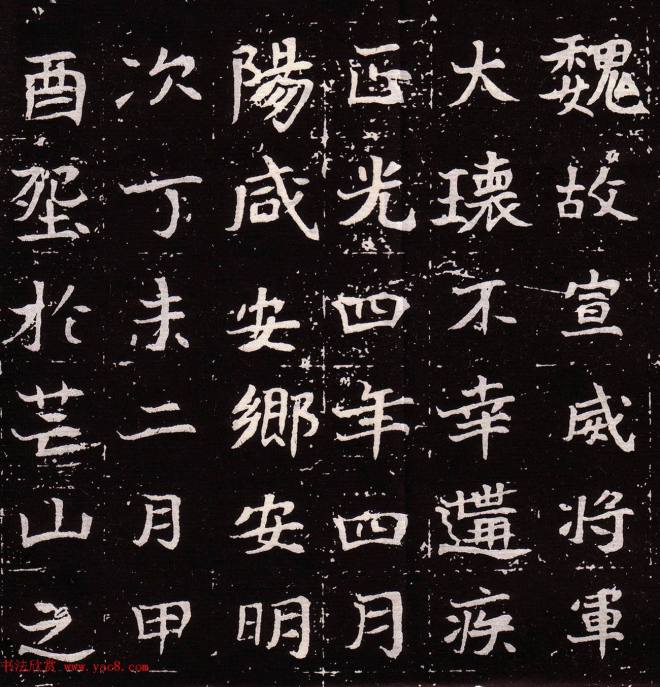 魏故宣威将軍
大瓌不幸遘疾
正光四年四月
陽咸安鄉安明
次丁未二月甲
酉於芒山之
书法欣赏 www.yac8.com